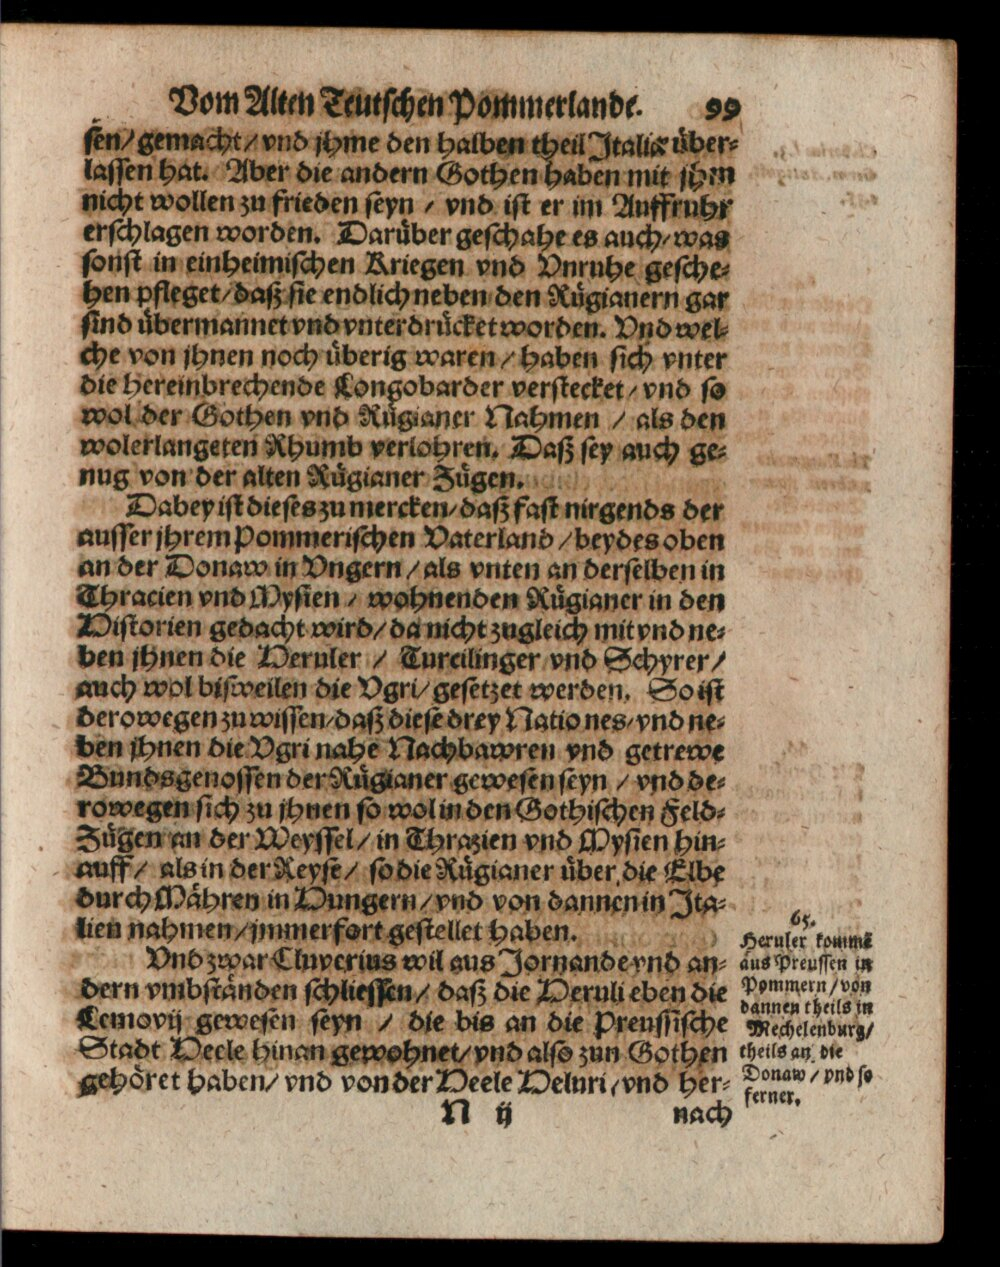 Vom Alten Teutschen Pommerlande. 99
sen/ gemacht/ vnd jhme den halben theil Italiæ über-
lassen hat. Aber die andern Gothen haben mit jhm
nicht wollen zu frieden seyn / vnd ist er im Auffruhr
erschlagen worden. Darüber geschahe es auch/ was
sonst in einheimischen Kriegen vnd Vnruhe gesche-
hen pfleget/ daß sie endlich neben den Rügianern gar
sind übermannet vnd vnterdrücket worden. Vnd wel-
che von jhnen noch überig waren / haben sich vnter
die hereinbrechende Longobarder verstecket/ vnd so
wol der Gothen vnd Rügianer Nahmen / als den
wolerlangeten Rhumb verlohren. Daß sey auch ge-
nug von der alten Rügianer Zügen.
Dabey ist dieses zu mercken/ daß fast nirgends der
ausser jhrem Pommerischen Vaterland / beydes oben
an der Donaw in Vngern / als vnten an derselben in
Thracien vnd Mysien / wohnenden Rügianer in den
Historien gedacht wird/ da nicht zugleich mit vnd ne-
ben jhnen die Heruler / Turcilinger vnd Schyrer/
auch wol bisweilen die Vgri/ gesetzet werden. So ist
derowegen zu wissen/ daß diese drey Nationes/ vnd ne-
ben jhnen die Vgri nahe Nachbawren vnd getrewe
Bundsgenossen der Rügianer gewesen seyn / vnd de-
rowegen sich zu jhnen so wol in den Gothischen Feld-
Zügen an der Weyssel/ in Thrazien vnd Mysien hin-
auff/ als in der Reyse/ so die Rügianer über die Elbe
durch Mähren in Hungern/ vnd von dannen in Ita-
lien nahmen/ jmmerfort gestellet haben.
Vnd zwar Cluverius wil aus Jornande vnd an-
dern vmbständen schliessen/ daß die Heruli eben die
Lemovij gewesen seyn / die bis an die Preussische
Stadt Heele hinan gewohnet/ vnd also zun Gothen
gehöret haben/ vnd von der Heele Heluri/ vnd her-
N ij nach
65.
Heruler kommē
aus Preussen in
Pommern/ von
dannen theils in
Mechelenburg/
theils an die
Donaw / vnd so
ferner.